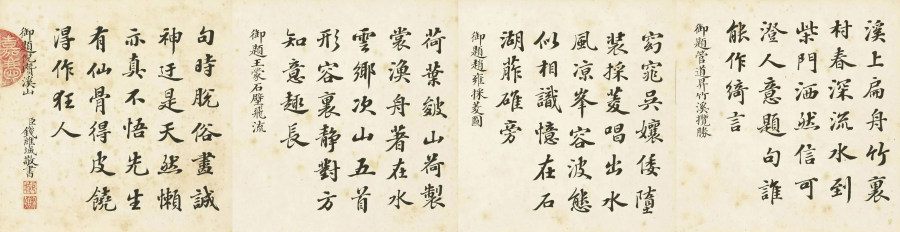 溪上扁舟竹裏
村春深流水到
柴門洒然信可
澄人意題句誰
能作綺言
御題管道昇竹溪攬勝
窈窕吳孃倭墮
裝採菱唱出水
風凉峯容波態
似相識憶在石
湖葄碓旁
御題趙雍採菱圖
荷葉皴山荷製
裳漁舟著在水
雲鄉次山五首
形容裏静對方
知意趣長
御題王蒙石壁飛流
句時脫俗盡誠
神迂是天然懶
示真不悟先生
有仙骨得皮饒
淂作狂人
御題 瓚溪山
臣錢維城敬書